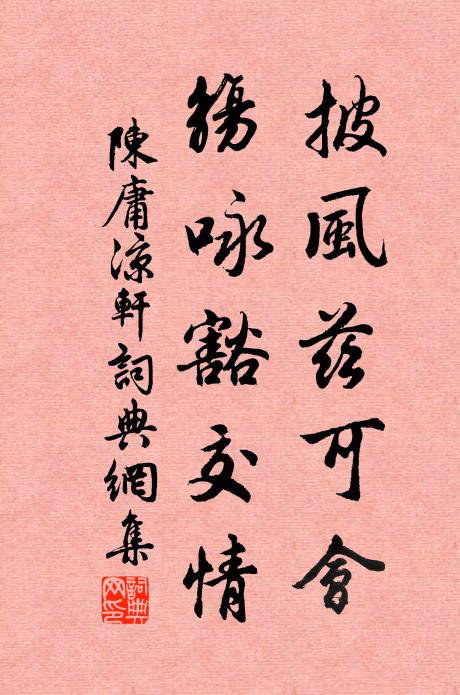 披風茲可會
觴咏豁交情
陳庸涼軒詞典網集
詞典
网印